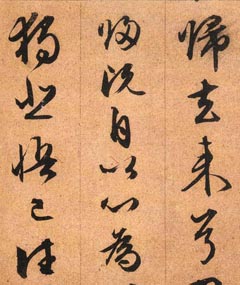 歸去来兮
歸既自以心為
獨悲悟已往